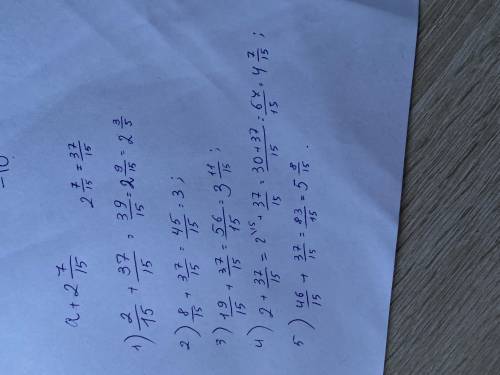 -10.
a + 2 7/15   2 7/15 = 37/15
1) 2/15 + 37/15 = 39/15 = 2 9/15 = 2 3/5
2) 8/15 + 37/15 = 45/15 = 3;
3) 19/15 + 37/15 = 56/15 = 3 11/15;
4) 2 + 37/15 = 2^15 + 37/15 = 30+37/15 = 67/15 = 4 7/15;
5) 46/15 + 37/15 = 83/15 = 5 8/15.